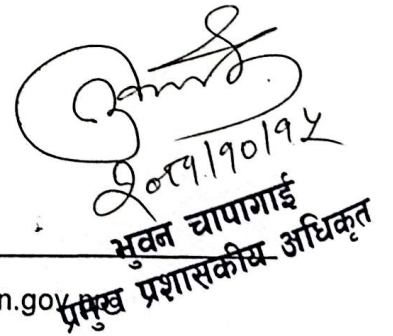 २०८१/१०/१५
भुवन चापागाई
प्रमुख प्रशासकीय अधिकृत
n.gov